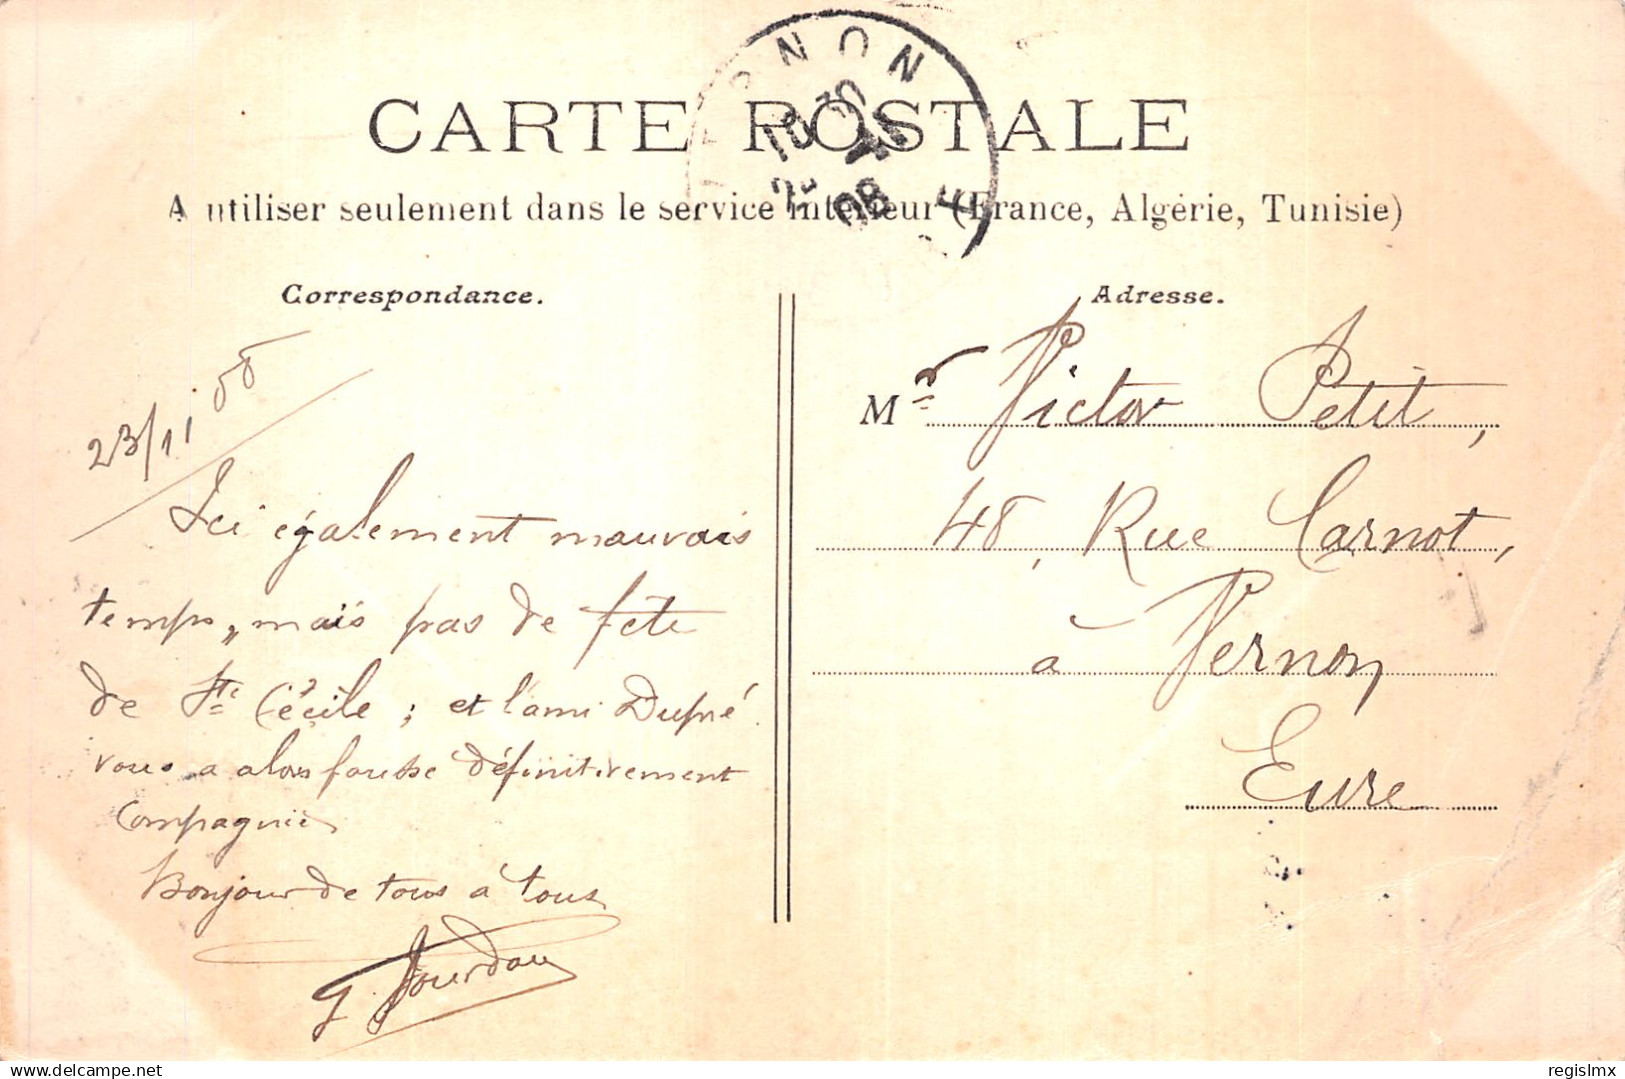 CARTE POSTALE
A utiliser seulement dans le service intérieur (France, Algérie, Tunisie)
VERNON
08
Correspondance.
23/11 08
Ici également mauvais
temps, mais pas de fête
de Ste Cécile ; et l'ami Dupré
vous a alors fausse définitivement
Compagnie
Bonjour de tous à tous
G. Jourdan
Adresse.
Mr Victor Petit,
48, Rue Carnot,
à Vernon
Eure
Website: Delcampe.net
regislmx